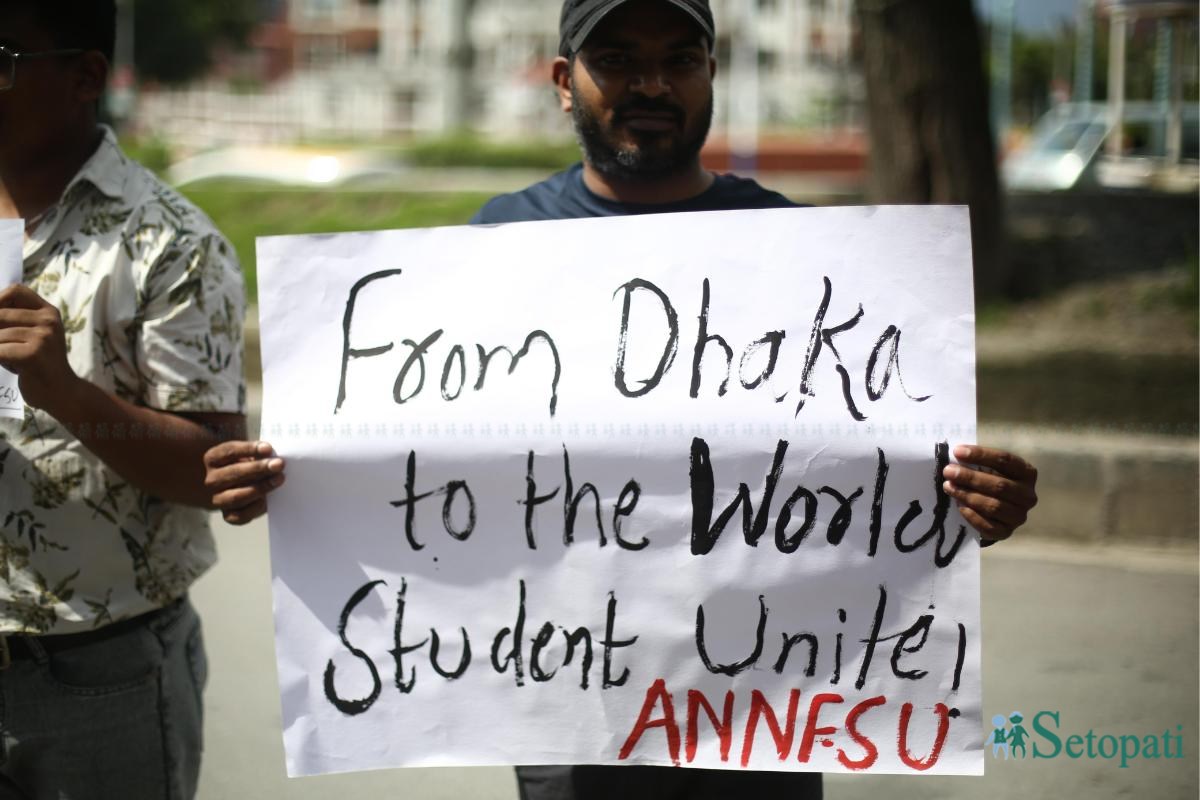 From Dhaka
to the World
Student Unite!
ANNFSU
Setopati